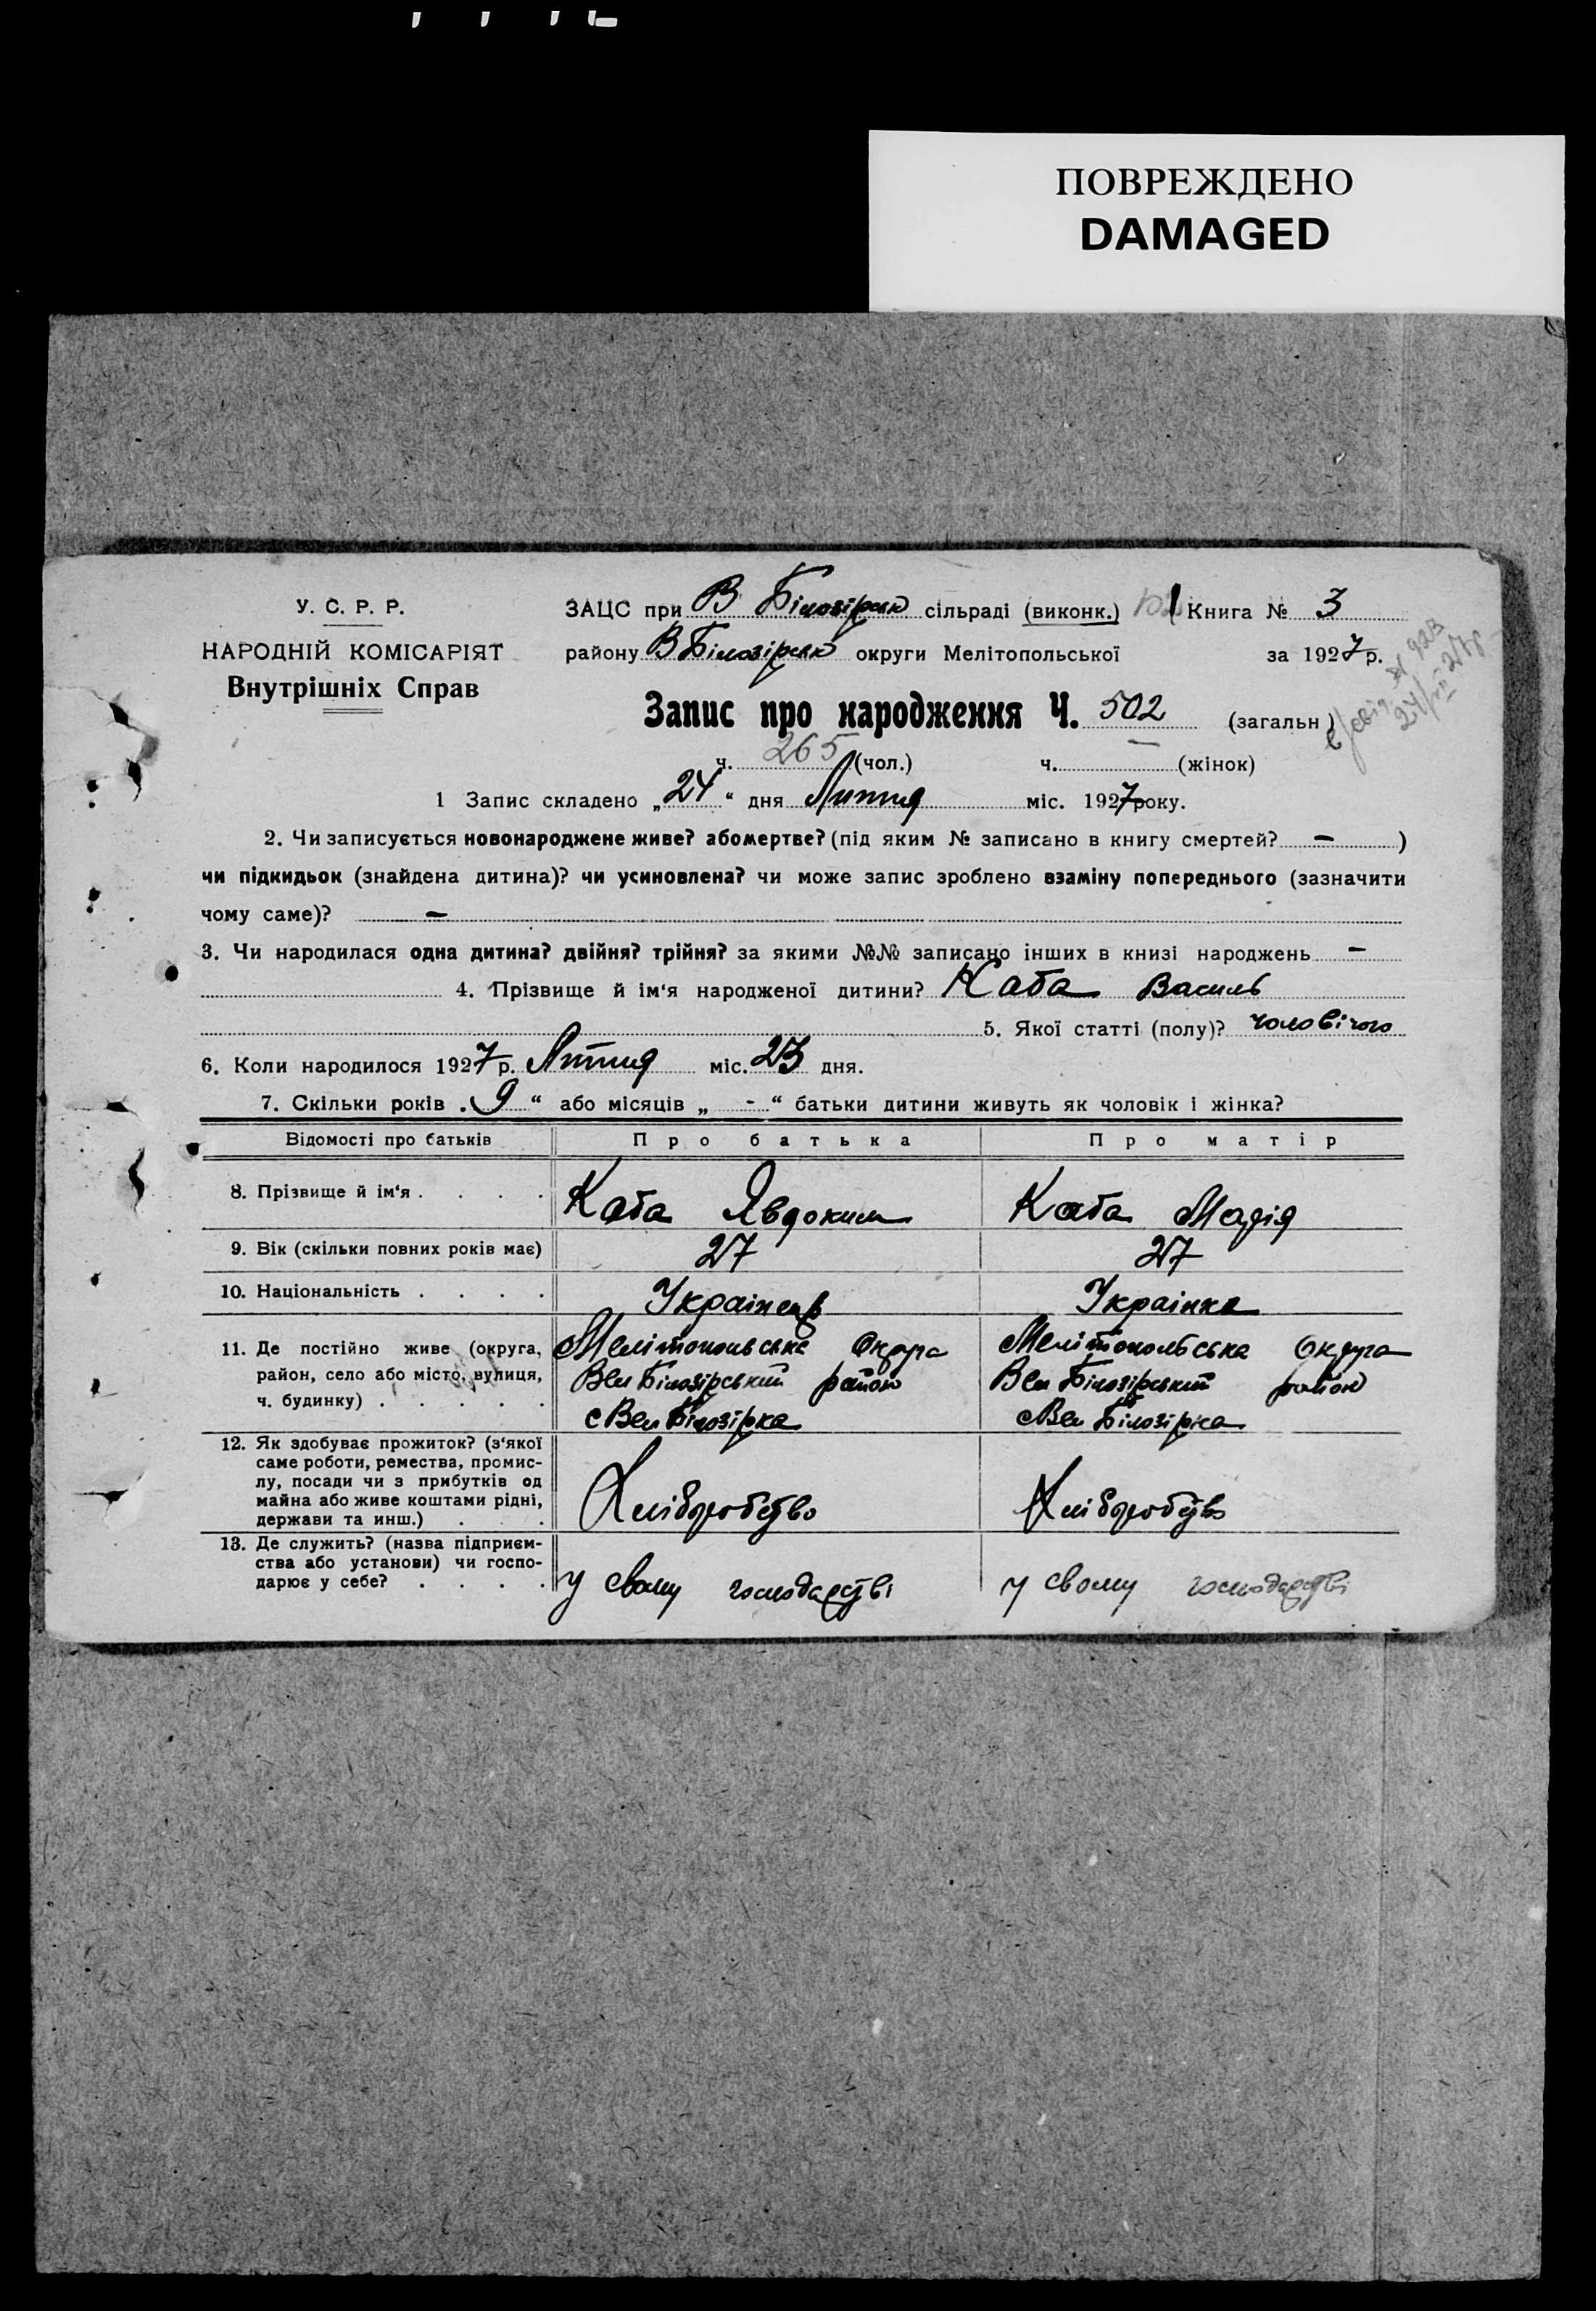 ПОВРЕЖДЕНО
DAMAGED
У. С. Р. Р.
НАРОДНІЙ КОМІСАРІЯТ
Внутрішніх Справ
ЗАЦС при В Білозірськ сільраді (виконк.) Книга № 3
району В Білозірськ округи Мелітопольської за 1927 р.
Запис про народження Ч. 502 (загальн)
ч. 265 (чол.) ч. — (жінок)
1 Запис складено „24“ дня Липня міс. 1927 року.
2. Чи записується новонароджене живе? або мертве? (під яким № записано в книгу смертей? — )
чи підкидьок (знайдена дитина)? чи усиновлена? чи може запис зроблено взаміну попереднього (зазначити
чому саме)? —
3. Чи народилася одна дитина? двійня? трійня? за якими №№ записано інших в книзі народжень —
4. Прізвище й ім‘я народженої дитини? Каба Василь
5. Якої статті (полу)? чоловічого
6. Коли народилося 1927 р. Липня міс. 23 дня.
7. Скільки років „9“ або місяців „ - “ батьки дитини живуть як чоловік і жінка?
Відомості про батьків Про батька Про матір
8. Прізвище й ім‘я . . . . Каба Явдоким Каба Марія
9. Вік (скільки повних років має) 27 27
10. Національність . . . . Українець Українка
11. Де постійно живе (округа, Мелітопольська Округа Мелітопольська Округа
район, село або місто, вулиця, Вел Білозірський район Вел Білозірський район
ч. будинку) . . . . . с Вел Білозірка с Вел Білозірка
12. Як здобуває прожиток? (з‘якої
саме роботи, ремества, промис-
лу, посади чи з прибутків од
майна або живе коштами рідні, Хліборобство Хліборобство
держави та инш.) . . .
13. Де служить? (назва підприєм-
ства або установи) чи госпо-
дарює у себе? . . . . у свому господарстві у свому господарстві